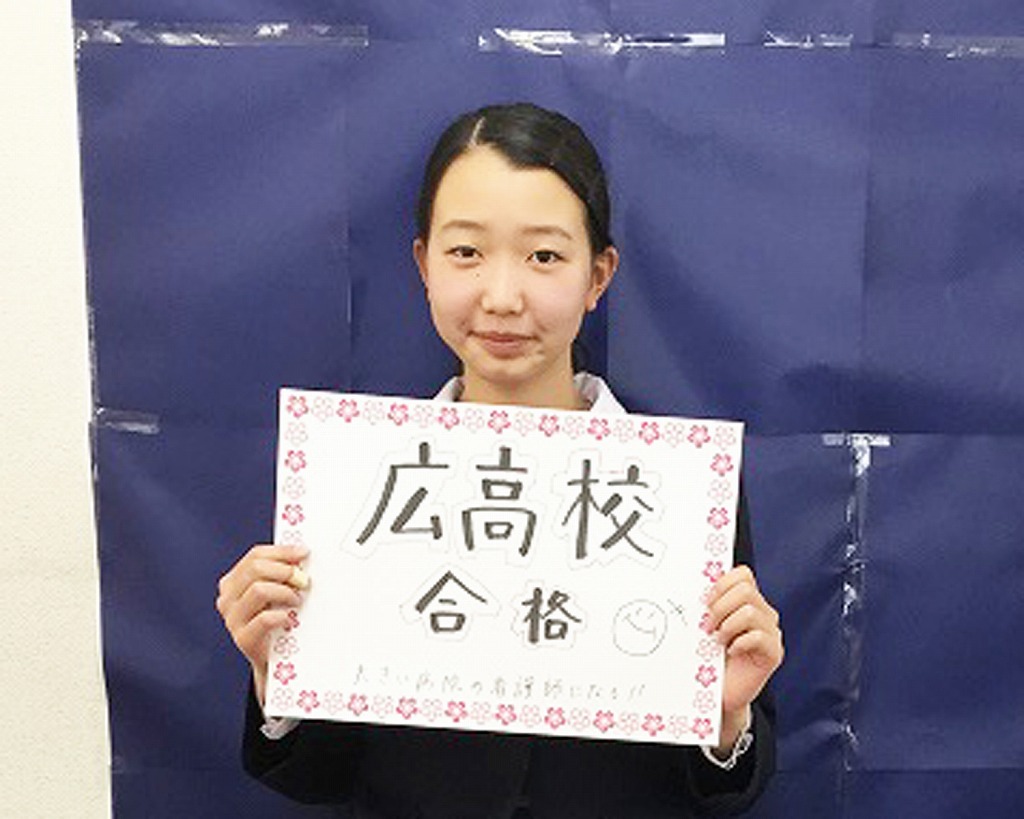 広高校
合格
大きい病院の看護師になる!!